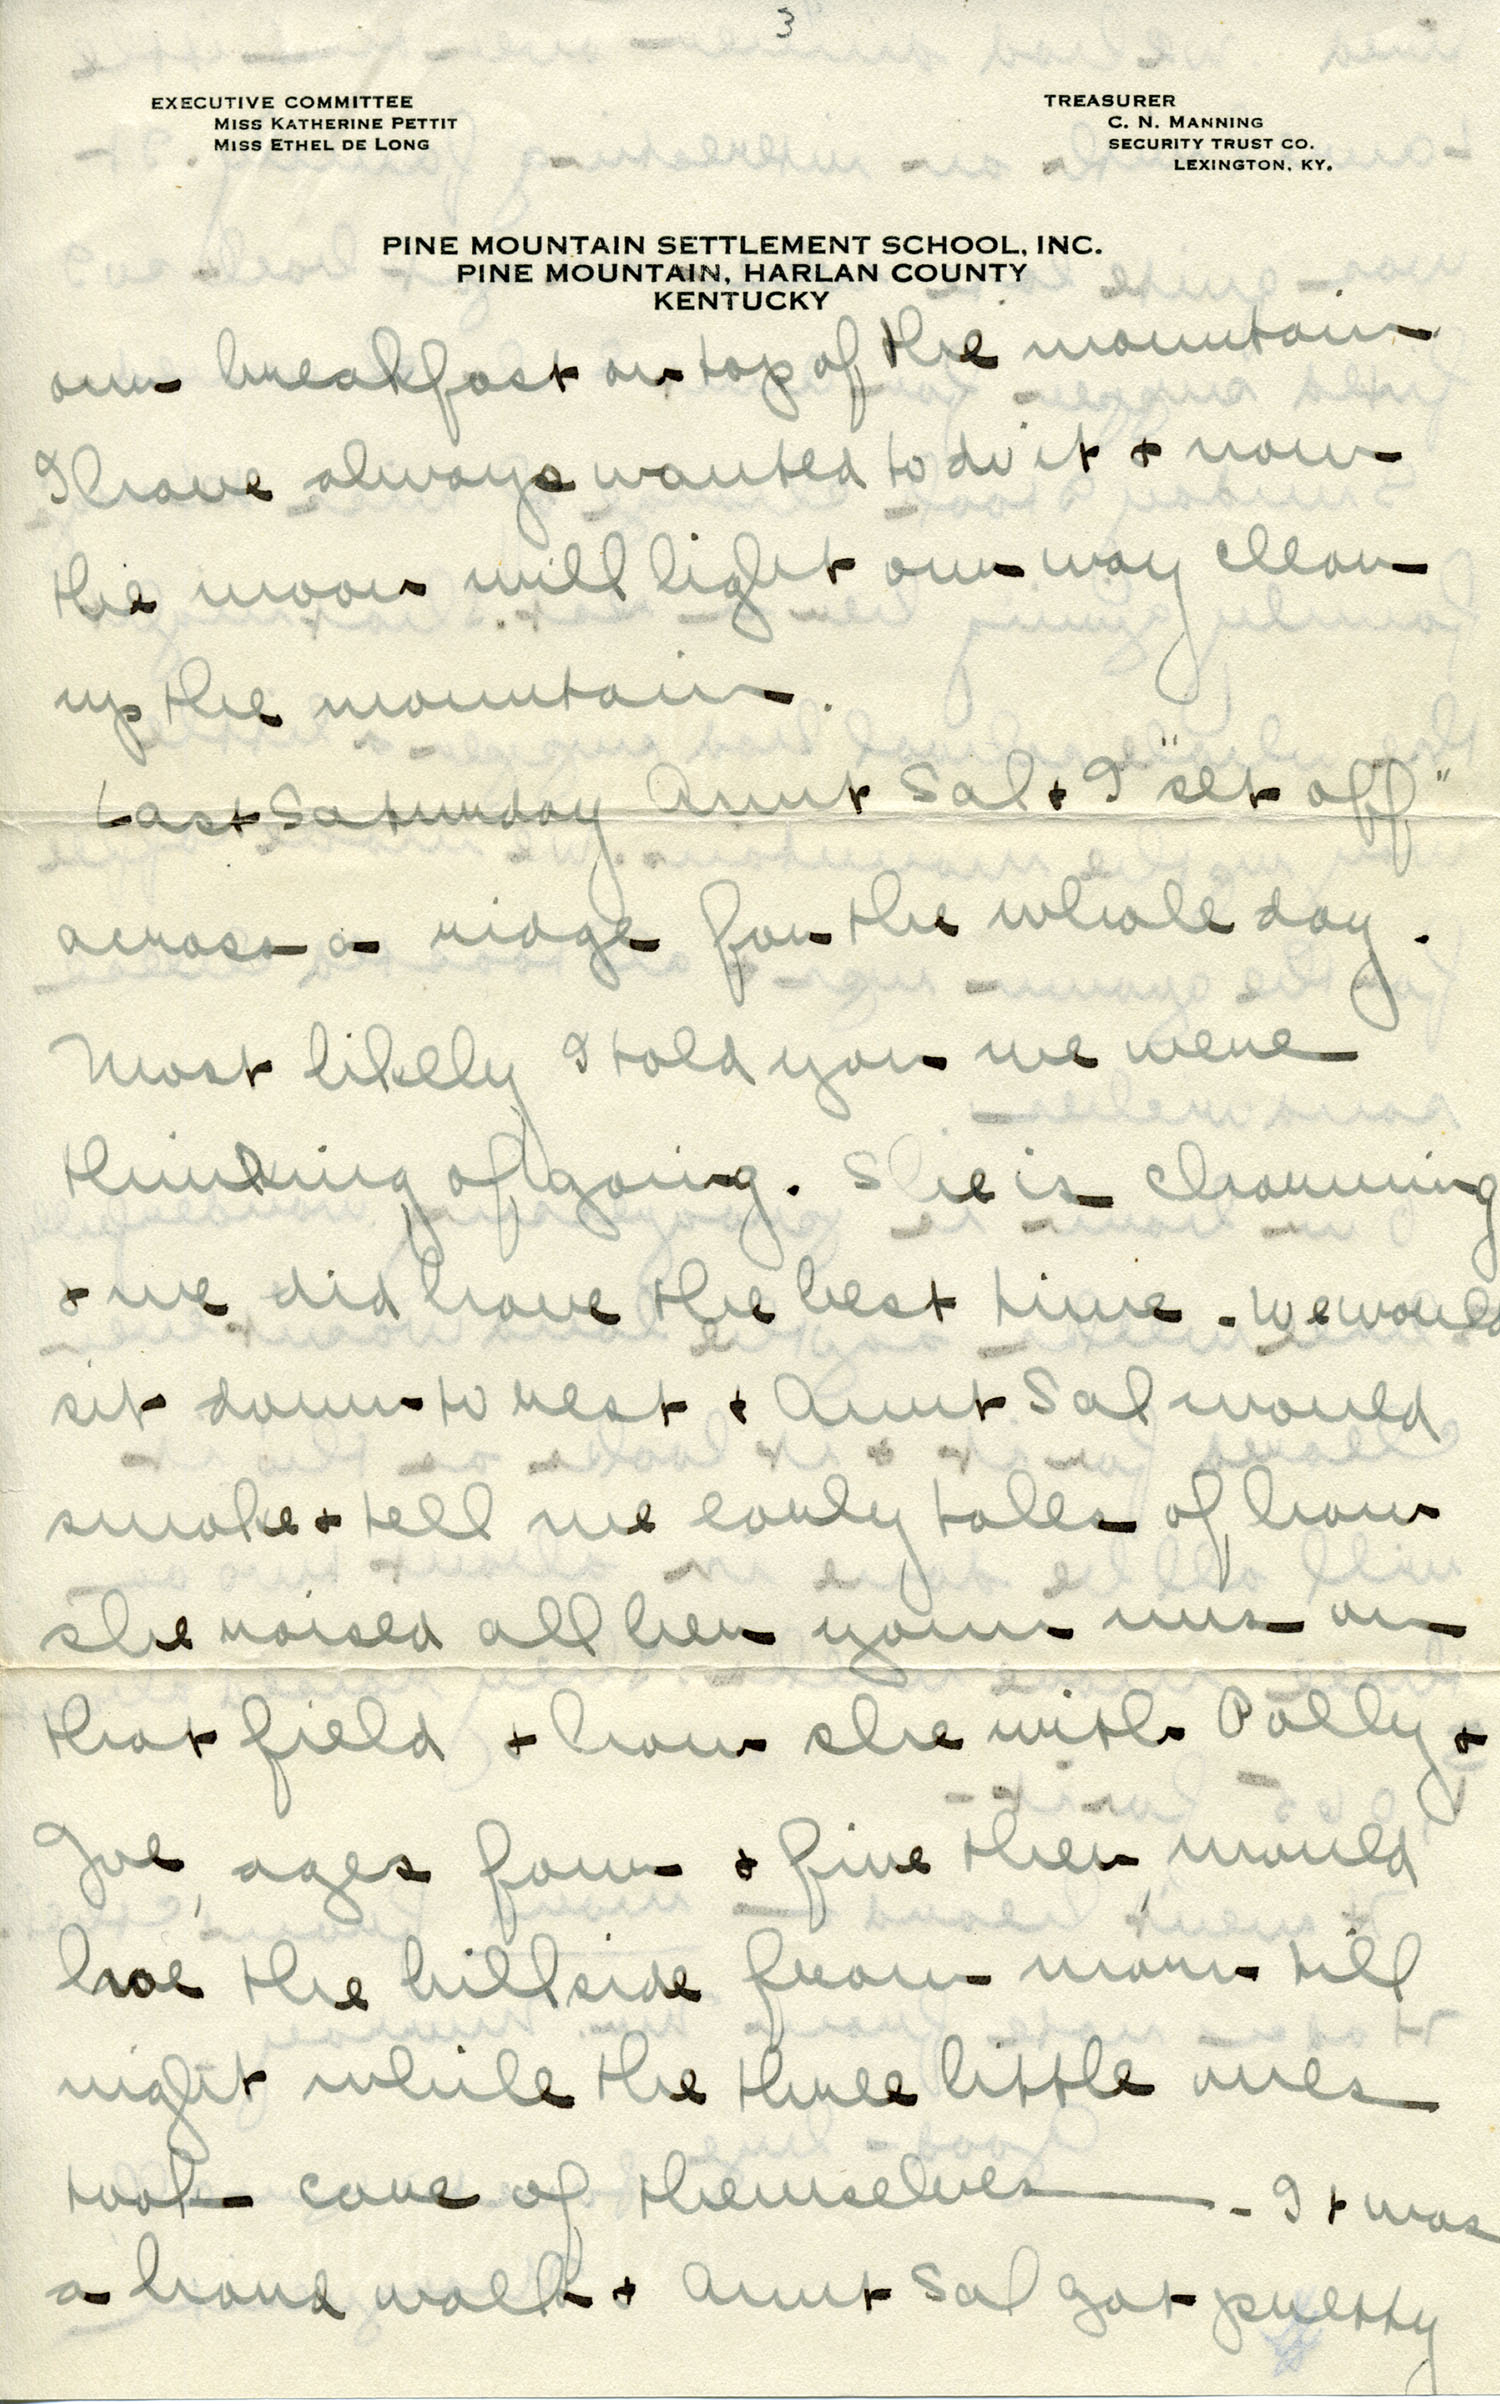 3
EXECUTIVE COMMITTEE
MISS KATHERINE PETTIT
MISS ETHEL DE LONG
TREASURER
C. N. MANNING
SECURITY TRUST CO.
LEXINGTON, KY.
PINE MOUNTAIN SETTLEMENT SCHOOL, INC.
PINE MOUNTAIN, HARLAN COUNTY
KENTUCKY
our breakfast on top of the mountain
I have always wanted to do it & now
the moon will light our way clear
up the mountain.
Last Saturday Aunt Sal & I "set off"
across a ridge for the whole day.
Most likely I told you we were
thinking of going. She is charming
& we did have the best time. We would
sit down to rest & Aunt Sal would
smoke & tell me early tales of how
she raised all her youn uns on
that field & how she with Polly &
Joe, ages four & five then, would
hoe the hillside from morn till
night while the three little ones
took care of themselves — . It was
a hard walk & Aunt Sal got pretty